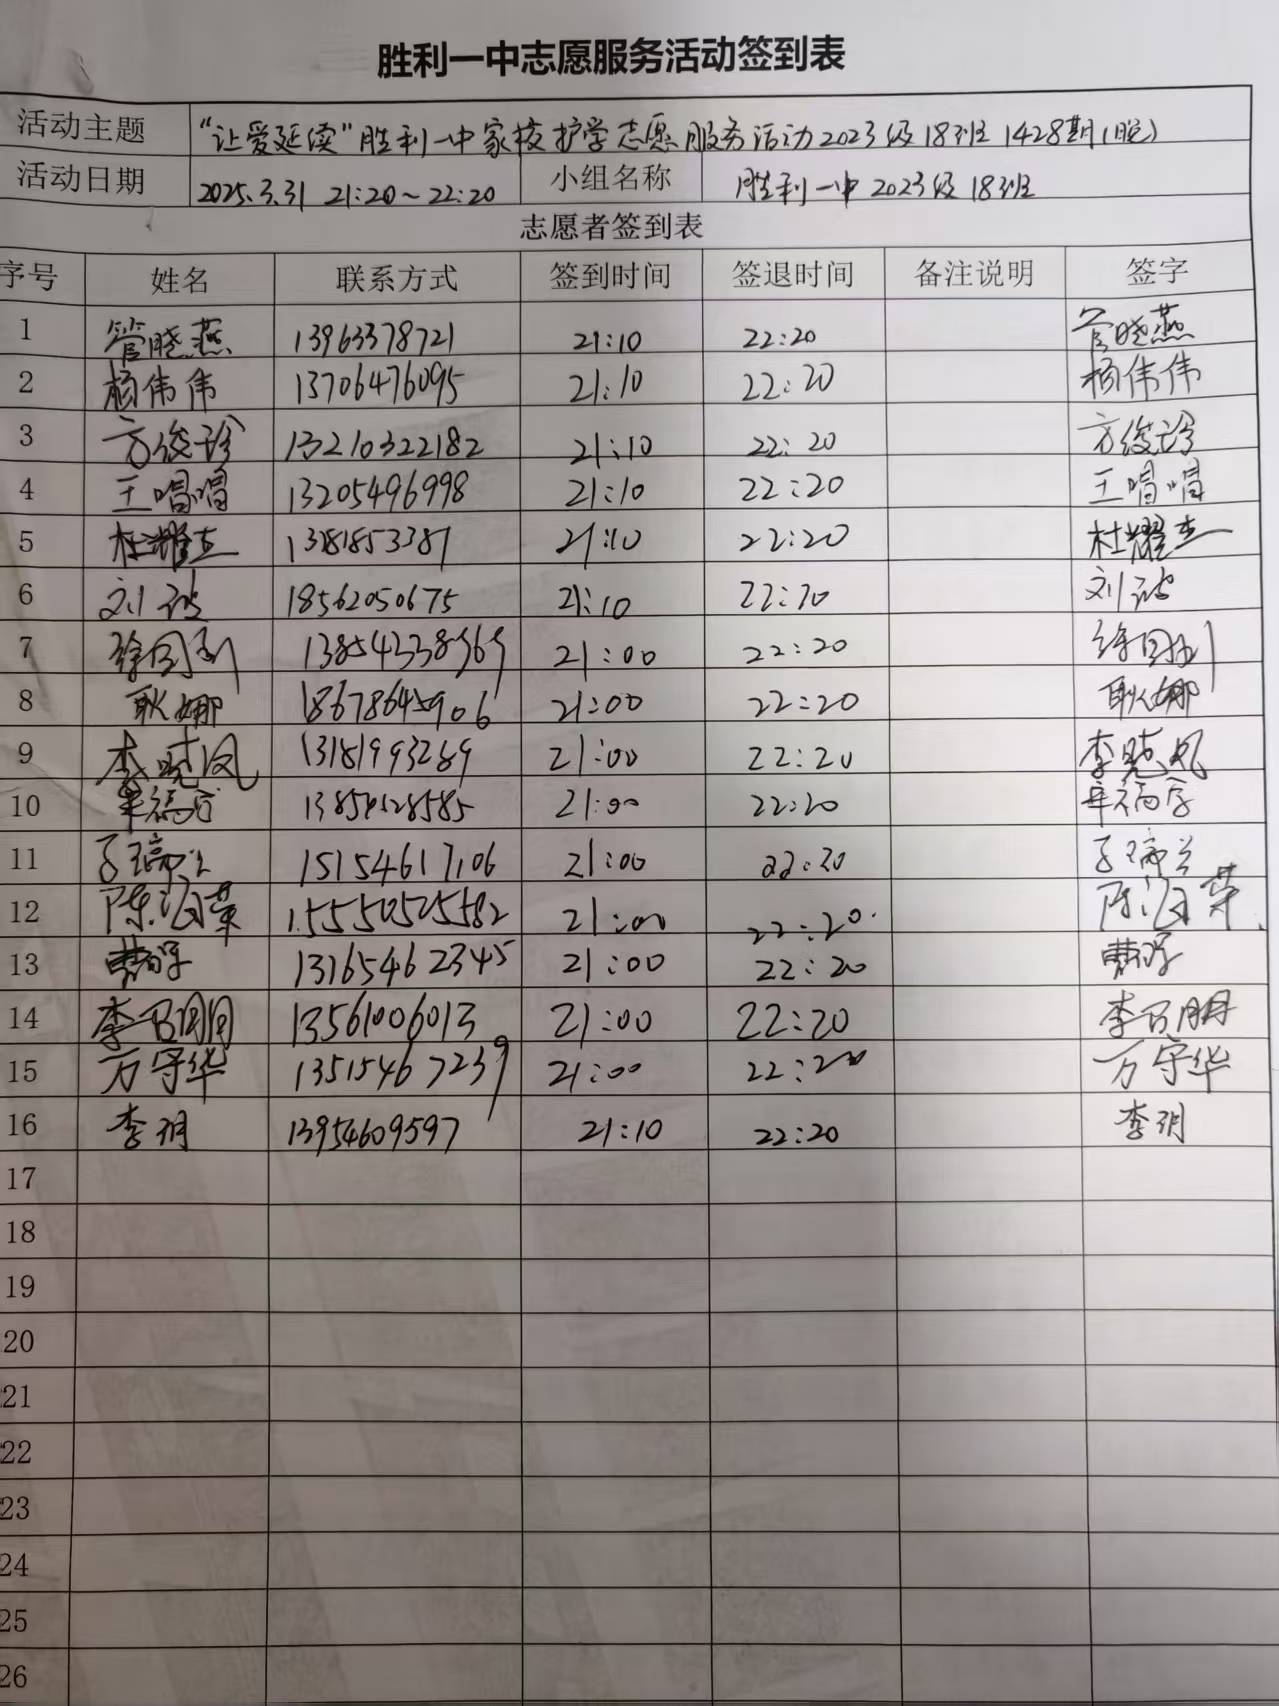 胜利一中志愿服务活动签到表
活动主题 “让爱延续”胜利一中家校护学志愿服务活动2023级18班 1428期(晚)
活动日期 2025.3.31 21:20~22:20 小组名称 胜利一中2023级18班
志愿者签到表
序号 姓名 联系方式 签到时间 签退时间 备注说明 签字
1 管晓燕 13963378721 21:10 22:20 管晓燕
2 杨伟伟 13706476095 21:10 22:20 杨伟伟
3 方俊珍 13210322182 21:10 22:20 方俊珍
4 王唱唱 13205496998 21:10 22:20 王唱唱
5 杜耀杰 13181853387 21:10 22:20 杜耀杰
6 刘波 18562050675 21:10 22:20 刘波
7 徐国利 13854338969 21:00 22:20 徐国利
8 耿娜 18678645906 21:00 22:20 耿娜
9 李晓凤 13181993269 21:00 22:20 李晓凤
10 21:00 22:20
11 15154617106 21:00 22:20
12 陈 荣 15550525582 21:00 22:20 陈 荣
13 曹 13165462345 21:00 22:20 曹
14 李 明 13561006013 21:00 22:20 李 明
15 万守华 13515467239 21:00 22:20 万守华
16 李玥 13954609597 21:10 22:20 李玥
17
18
19
20
21
22
23
24
25
26